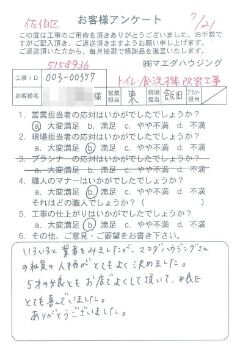 佐伯区
お客様アンケート
7/21
この度は工事のご用命を頂きありがとうございました。お手数で
すがご記入頂き、ご返送頂きますようお願い申し上げます。
ご返送頂いた方に、毎月抽選で感謝品を進呈いたします。
5158936
㈱マエダハウジング
工事ID
003-00357
トイレ・食洗機改修工事
お名前
様
営業担当
東
現場担当
飯田
プラン担当
1. 営業担当者の応対はいかがでしたでしょうか?
a. 大変満足 b. 満足 c. やや不満 d. 不満
2. 現場担当者の応対はいかがでしたでしょうか?
a. 大変満足 b. 満足 c. やや不満 d. 不満
3. プランナーの応対はいかがでしたでしょうか?
a. 大変満足 b. 満足 c. やや不満 d. 不満
4. 職人のマナーはいかがでしたでしょうか?
a. 大変満足 b. 満足 c. やや不満 d. 不満
それはどの職人でしょうか? ( )
5. 工事の仕上がりはいかがでしたでしょうか?
a. 大変満足 b. 満足 c. やや不満 d. 不満
6. その他、ご意見・ご要望をお書き下さい。
いろいろと業者をみましたが、マエダハウジングさん
の社員の人柄がとてもよく決めました。
5才の娘ともお話でよくして頂いて、娘も
とても喜んでいました。
ありがとうございました。